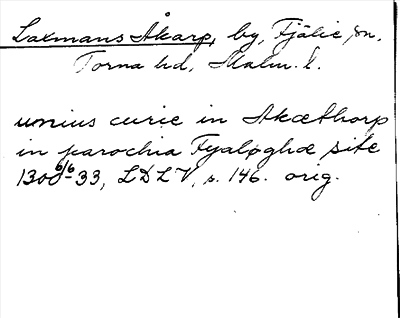 Laxmans Åkarp, by, Fjälie sn.
Torna hd, Malm. l.
unius curie in Akæthorp
in parochia Fyaløghæ site
1300 6/6 33, LDLV, s. 146. orig.